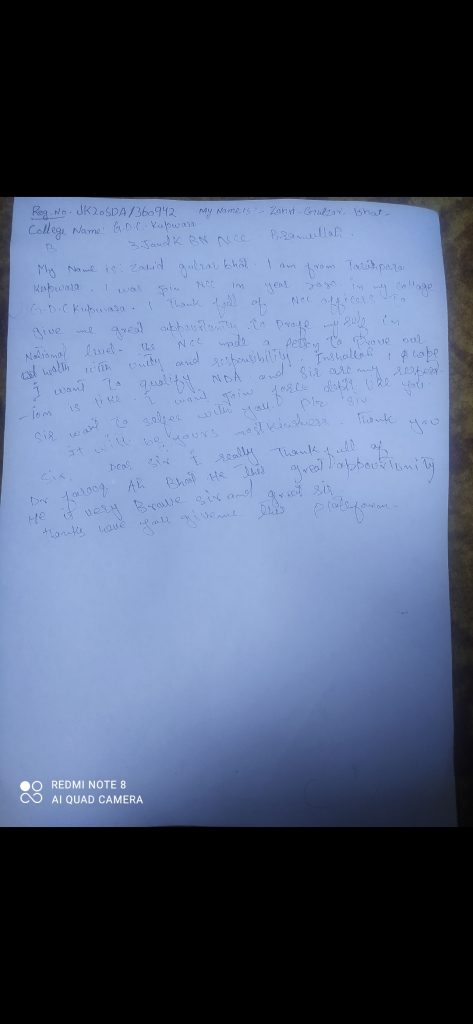 Reg. No. JK20SDA/360942 My Name is :- Zahid Gulzar bhat-
College Name: G.D.C. Kupwara
3 J and K BN NCC Baramullah.
My Name is: Zahid gulzar bhat. I am from
Kupwara. I was join NCC in year 2020 in my college
G.D.C Kupwara. I Thank full of NCC officers To
give me great appourtunity to my self in
National level. the NCC made a To Prove our
with unity and responsibility. Inshallah, I hope
I want To qualify NDA and Sir are my
is like. I want join force like you.
Sir want To with you
It will be yours kindness. Thank you
Sir. Dear Sir I really Thank full of
Dr farooq Ah Bhat He this great appourtunity
He is very Brave sir and great sir
thanks have full give me this plateforam-
REDMI NOTE 8
AI QUAD CAMERA